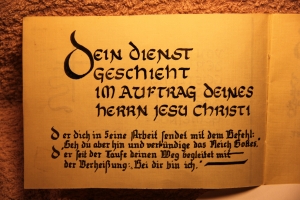 Dein Dienst
geschieht
im Auftrag deines
Herrn Jesu Christi
Der dich in seine Arbeit sendet mit dem Befehl:
„Geh du aber hin und verkündige das Reich Gottes."
Der seit der Taufe deinen Weg begleitet mit
der Verheißung: „Bei dir bin ich."